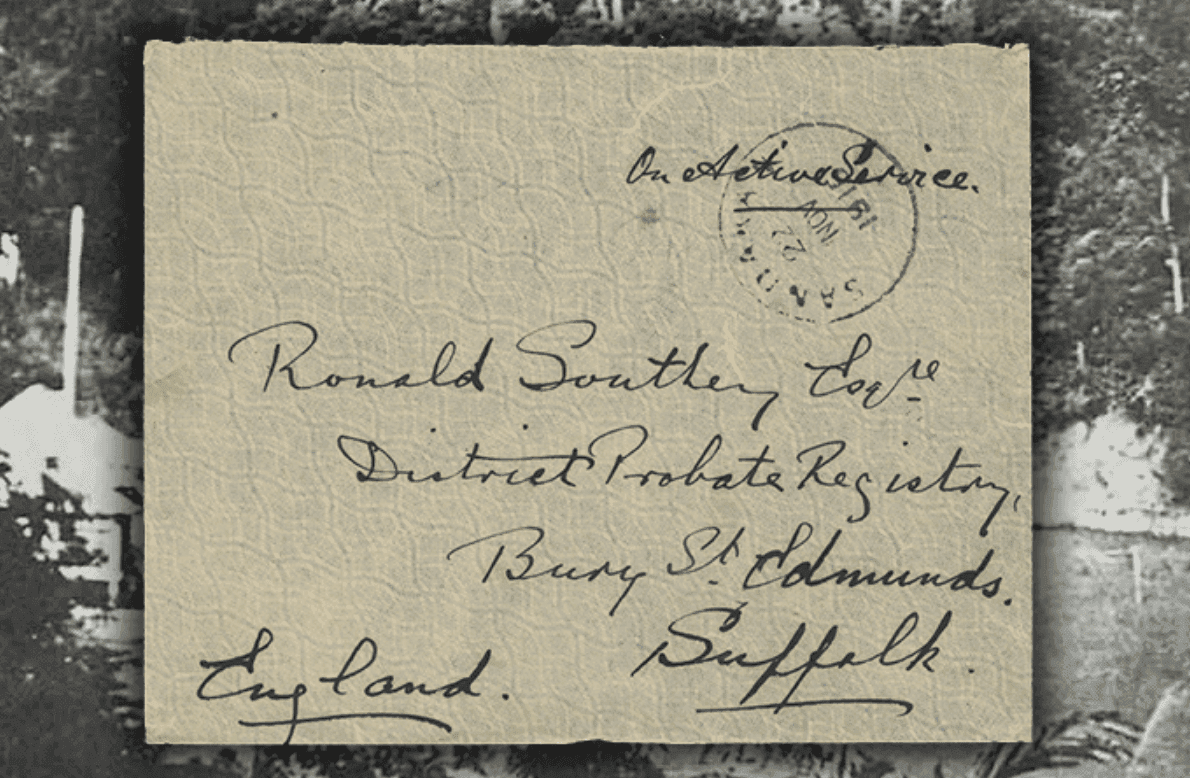 On Active Service.
NOV
22
Ronald Southey Esqre
District Probate Registry,
Bury St. Edmunds.
Suffolk.
England.